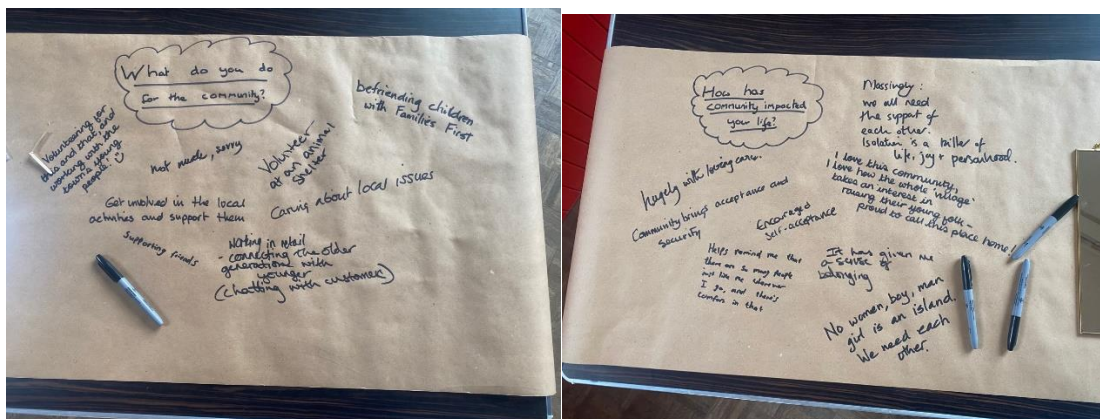 What do you do
for the community?
befriending children
with Families First
Volunteering for
this and that and
working with the
town's young
people
Not much, sorry
Volunteer
at an animal
shelter
Get involved in the local
activities and support them
Caring about local issues
Supporting friends
Working in retail
- connecting the older
generation with
younger
(chatting with customer)
How has
community impacted
your life?
Massively:
we all need
the support of
each other.
Isolation is a killer of
life, joy + personhood.
hugely with loving care.
I love this community,
I love how the whole 'village'
takes an interest in
raising their young folk -
proud to call this place home!
Community brings acceptance and
security
Encouraged
self-acceptance
Helps remind me that
there are so many people
just like me wherever
I go, and there's
comfort in that
It has given me
a sense of
belonging
No women, boy, man
girl is an island.
We need each
other.